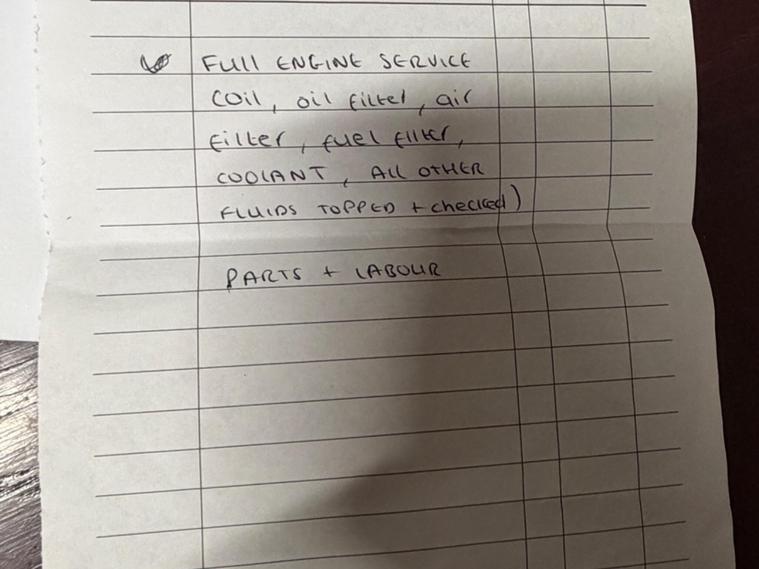 FULL ENGINE SERVICE
(oil, oil filter, air
filter, fuel filter,
COOLANT, ALL OTHER
FLUIDS TOPPED + checked)
PARTS + LABOUR